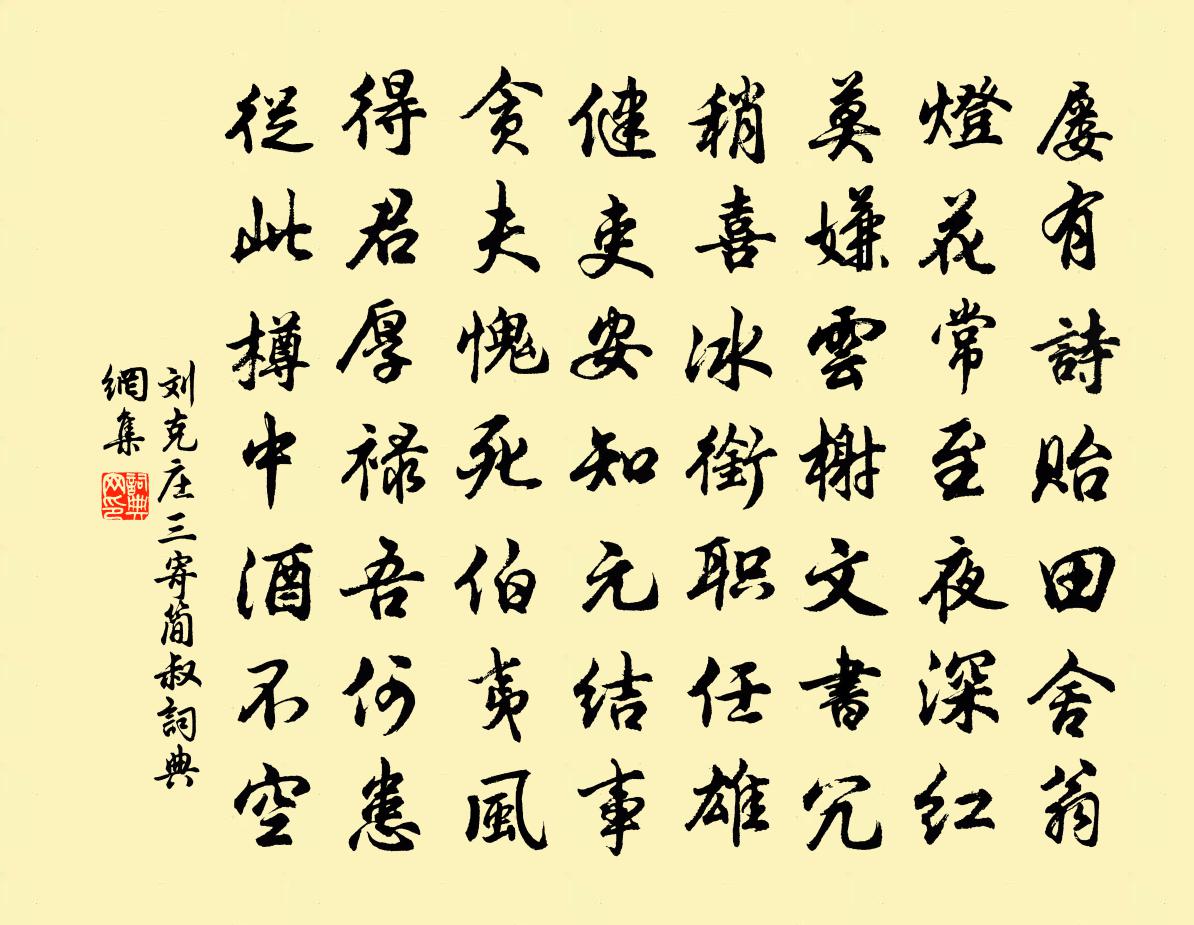 屡有詩貽田舍翁
燈花常至夜深红
莫嫌雲榭文書冗
稍喜冰銜职任雄
健吏安知元结事
贪夫愧死伯夷風
得君厚禄吾何患
從此樽中酒不空
刘克庄三寄简叔詞典
網集
詞典
网印